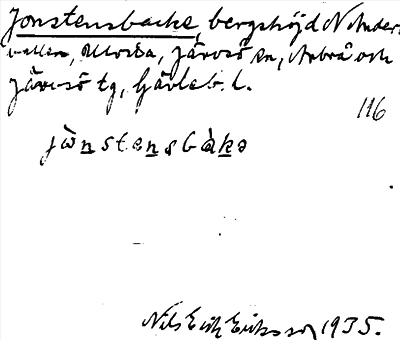 Jonstensbacke, bergshöjd N Ander-
vallen, Ulvsta, Järvsö sn, Arbrå och
Järvsö tg, Gävleb. l.
116
jònstensbàkɛ
Nils Erik Eriksson 1935.